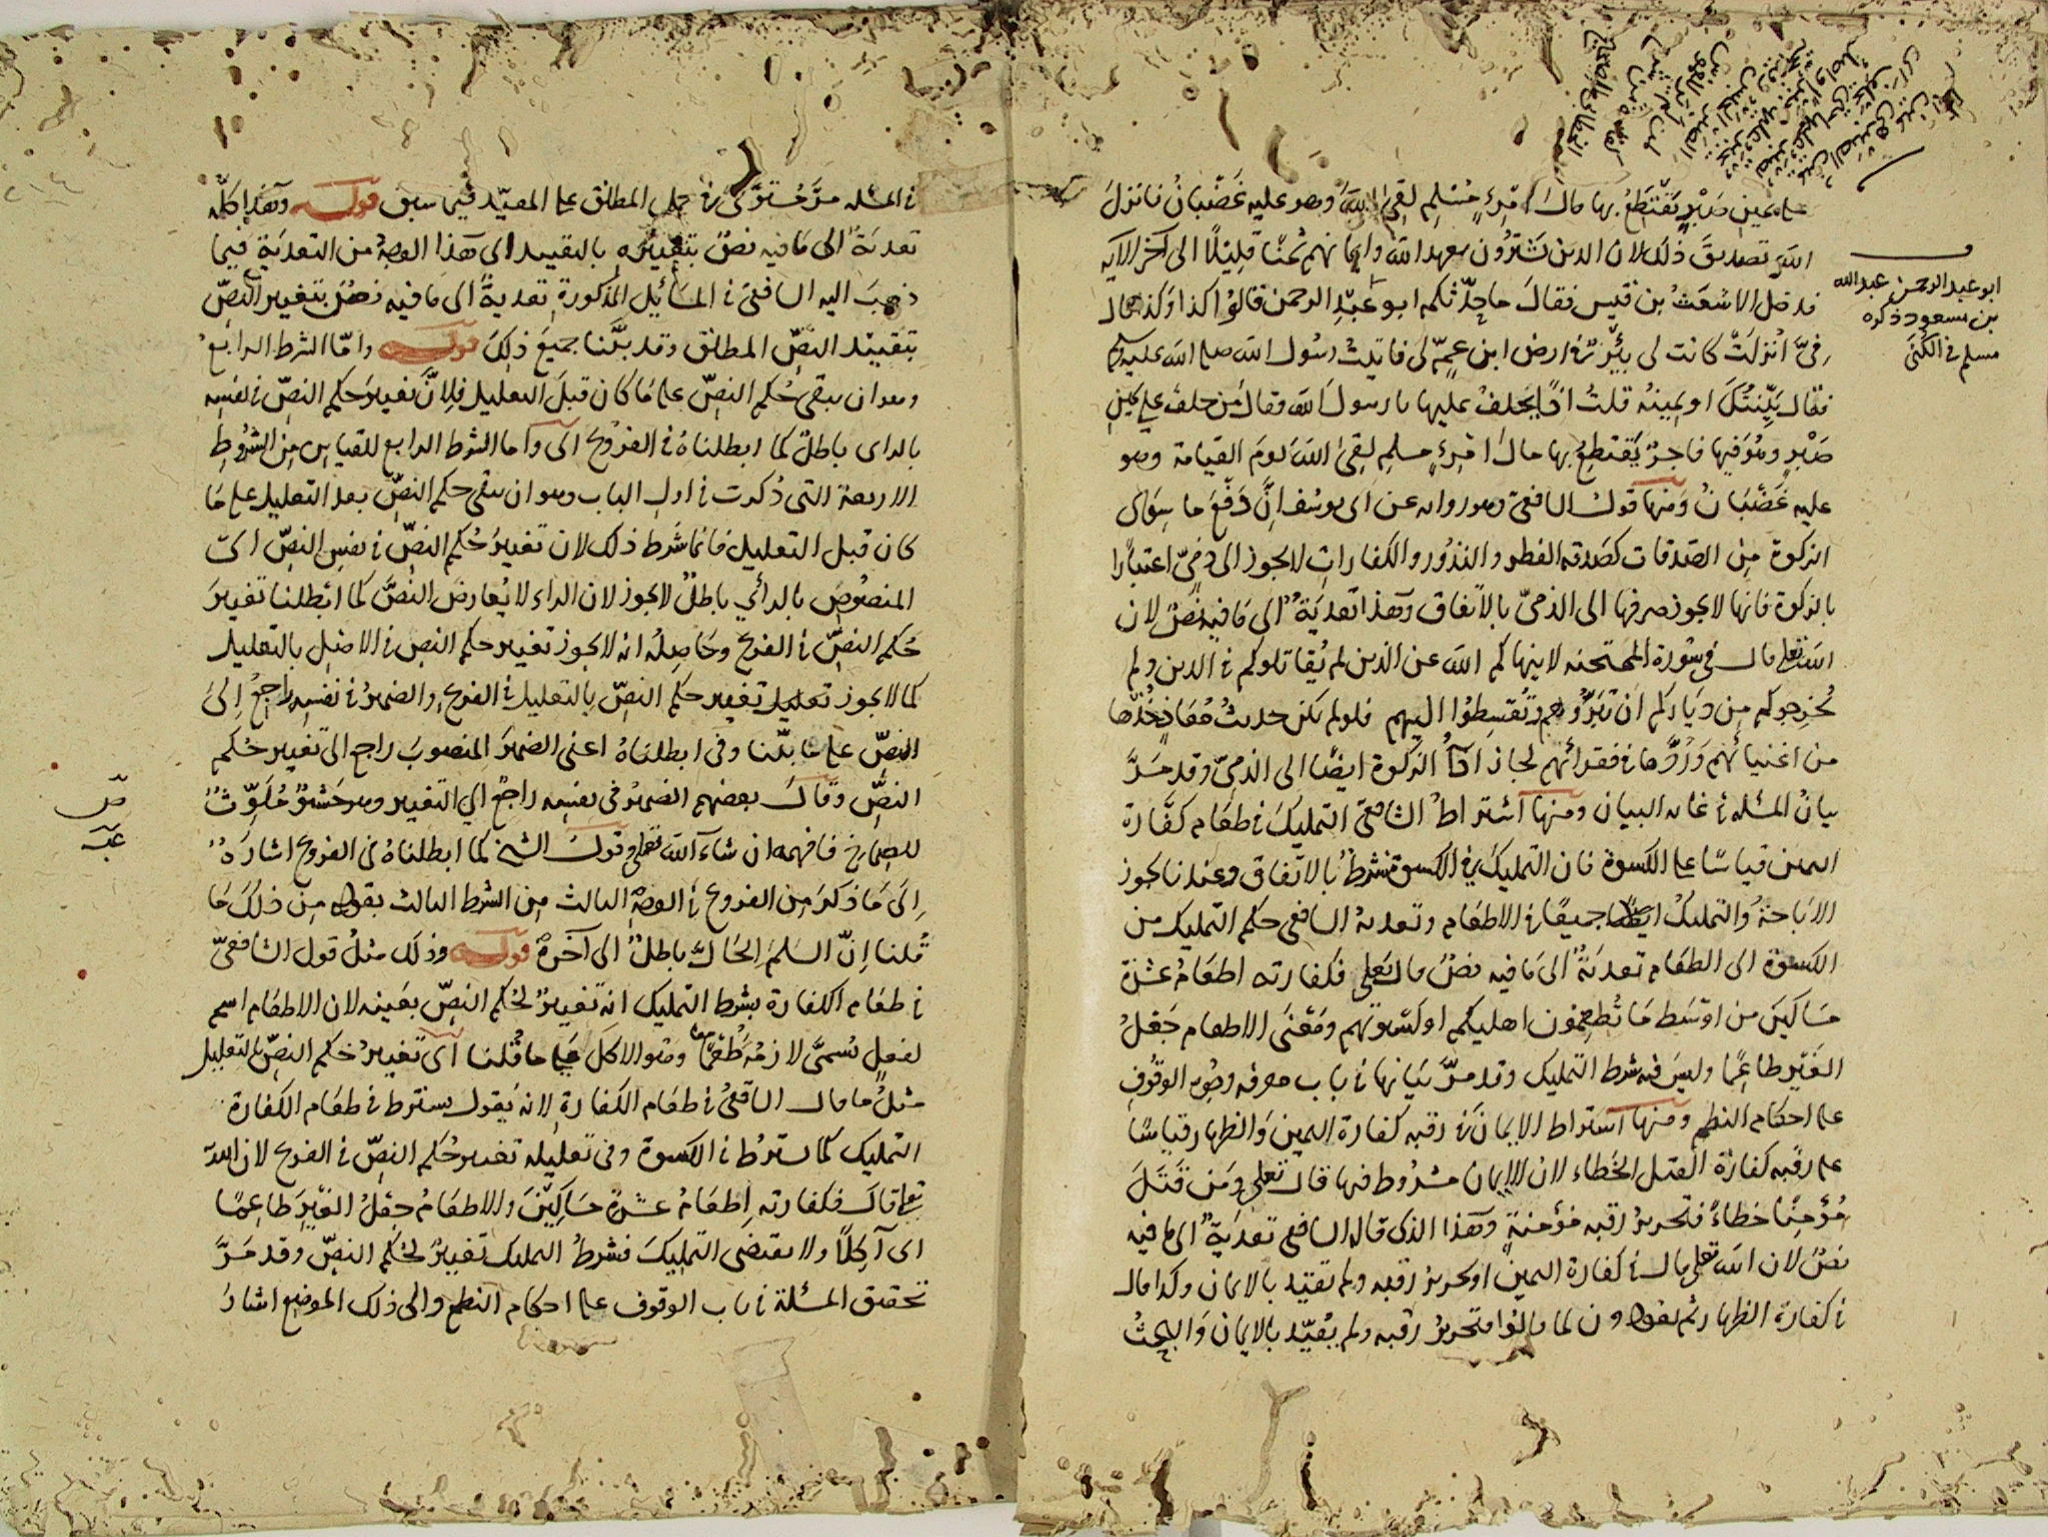 على يمين صَبْرٍ يَقْتَطِعُ بها مالَ امْرِئٍ مُسْلِمٍ لقِىَ اللهَ وهو عليه غَضْبانُ فانزلَ
اللهُ تصديقَ ذلك ان الذين يَشْتَرُون بعهد الله وايمانهم ثمنًا قليلًا الى آخر الآيه
فدخل الاشعَثُ بن قيس فقالَ ما حدّثكم ابو عَبْدِ الرحمن قالُوْا كذا وكذا قال
فِىَّ اُنْزلَتْ كانت لى بِئْرٌ فى ارض ابن عمٍّ لى فاتيتُ رسُول الله صلى الله عليه وسلم
فقال بَيِّنَتُكَ او يمينُه قلتُ اذًا يَحلفُ عليها يا رسولَ الله فقال مَن حلف على يمينِ
صَبْرٍ وهُوَ فيها فاجرٌ يَقتطِعُ بها مالَ امْرِئٍ مسلمٍ لقِىَ اللهَ يومَ القيامة وهو
عليه غَضْبَانُ ومنها قولُ الشافعىّ وهو روايه عن ابى يوسُف اِنَّ دَفْعَ ما سِوَى
الزكوة مِن الصّدقات كصَدقة الفطر والنذُور والكفاراتِ لا يجوز الى ذِمّىّ اعتبارًا
بالزكوة فانها لا يجوز صرفها الى الذمىّ بالاتفاق وهَذا تعديَةٌ الى مَا فيه نصٌّ لان
الله تعالى قال فى سُورة الممتحنه لا ينهاكم الله عن الذين لم يُقاتلوكم فى الدين ولم
يُخرجوكم مِن دِيَاركم ان تَبَرُّوهم وتُقسِطُوا اليهم فلو لم يكن حديثُ مُعَاذٍ خُذْها
من اغنيائهم وَرُدَّها فى فقرائهم لجاز اداءُ الزكوة ايضًا الى الذمىّ وقد مَرَّ
بيانُ المسئله فى غايه البيان ومنها اشتراطُ الشافعىّ التمليكَ فى طعَام كفَّارة
اليمين قياسًا على الكسوة فان التمليكَ فى الكسوة شرطٌ بالاتّفاق وعندنا يجوز
الاباحَةُ والتمليكُ جميعًا فى الاطعَام وتعديةُ الشافعى حكم التمليك من
الكسوة الى الطعَام تعديَةٌ الى مَا فيه نصٌّ قال تعالى فكفارته اطعَامُ عشرة
مسَاكينَ من اوْسَط مَا تُطعِمُون اهليكم او كسْوتهم ومَعْنَى الاطعام جَعْلُ
الغَيْر طاعِمًا وليسَ فيه شرط التمليك وقد مرّ بيَانها فى باب معرفه وجُوه الوقُوفِ
على احكام النظم ومنها اشتراط الايمانِ فى رقبه كفارة اليمين والظهار قياسًا
على رقَبه كفارَة القتل الخَطاء لان الايمان مشرُوط فيها قال تعالى ومَن قتَلَ
مُؤمِنًا خطاءً فتحريرُ رقبه مُؤمنةٍ وهَذا الذى قاله الشافعى تعديَةٌ الى ما فيه
نصٌّ لان الله تعالى قال فى كفارة اليمين او تحريرُ رقبه ولم يُقيّد بالايمان وكذا قال
فى كفارة الظهار ثم يعُودُون لما قالُوْا فتحريرُ رقبه ولم يُقَيّد بالايمان وَالبحثُ
ابو عبد الرحمن عبد الله
بن مسعود ذكره
مسلم فى الكُنَى
فى المسئله مرَّ مُستوفًى فى حمل المطلق على المقيّد فيما سبق قوله وهَذا كلّه
تعديَةٌ الى مَا فيه نصٌّ بتغييره بالتقييد اى هَذا الوجهُ من التعديَةِ فيما
ذهَبَ اليه الشافعىّ فى المسَائِلِ المذكورةِ تعديةٌ الى مَا فيه نصٌّ بتغيير النصّ
بتقييد النصِّ المطلق وقد بيَّنا جميعَ ذلِكَ قوله وامّا الشرط الرابعُ
وهو ان يبقى حُكم النصّ على مَا كان قبلَ التعليل فلِانَّ تغييرَ حكم النصّ فى نفسه
بالراى باطلٌ كما ابطلناهُ فى الفرُوع اى واما الشرط الرابع للقياس مِن الشرُوطِ
الاربعة التى ذُكرت فى اول الباب وهو ان يبقى حكم النصّ بعد التعليل على مَا
كان قبل التعليل فانما شَرط ذلك لان تغييرَ حُكمِ النصّ فى نفسِ النصّ اى
المنصُوصِ بالرأىِ باطلٌ لا يجوز لان الراء لا يُعارضُ النصَّ كما ابْطلنا تغييرَ
حُكم النصّ فى الفرع وحَاصِلُه انه لا يجوز تغيير حكم النص فى الاصْلِ بالتعليل
كما لا يجوز تغيير حكم النصّ بالتعليل فى الفرع والضميرُ فى نفسِه راجِعٌ اِلىَ
النصّ على ما بيّنا وفى ابطلناهُ اعنى الضميرَ المنصوبَ راجع الى تغيير حُكم
النصِّ وقالَ بعضهم الضميرُ فى نفسِه راجعٌ الى التغيير وهو حَشْوٌ مُلَوِّثٌ
للصِماخ فافهمه ان شاء الله تعالى وقولُ الشيخ كما ابطلناهُ فى الفروع اشارَةٌ
اِلَى مَا ذكرَ مِن الفروع فى الوجهِ الثالث مِن الشرط الثالث بقوله مِن ذلكَ مَا
قُلنا اِنّ السلمَ الحالَّ باطلٌ الى آخرهٖ قوله وذلك مثلُ قول الشافعىّ
فى طعَام الكفارة بشرط التمليك انه تغييرٌ لحُكم النصّ بعَينه لان الاطعَام اسم
لفعلٍ يُسمَّى لازمُهُ طُعْمًا وهُو الاكلُ على ما قُلنا اى تغييرُ حُكم النصّ بالتعليل
مثلُ ما قال الشافعىُّ فى طعَام الكفارةِ لانه يَقول يشترط فى طعَام الكفارة
التمليك كما يشترطُ فى الكسوة وفى تعليله تغييرُ حُكم النصّ فى الفرع لان الله
تعالى قالَ فكفارته اِطعَامُ عشرة مسَاكينَ والاطعَامُ جعْلُ الغَيْرِ طاعِمًا
اى آكِلًا ولا يقتضى التمليكَ فشرطُ التمليك تغييرٌ لحُكم النصّ وقد مَرَّ
تحقيق المسئلة فى باب الوقوف على احكام النظم والى ذلك الموضعِ اشارَ